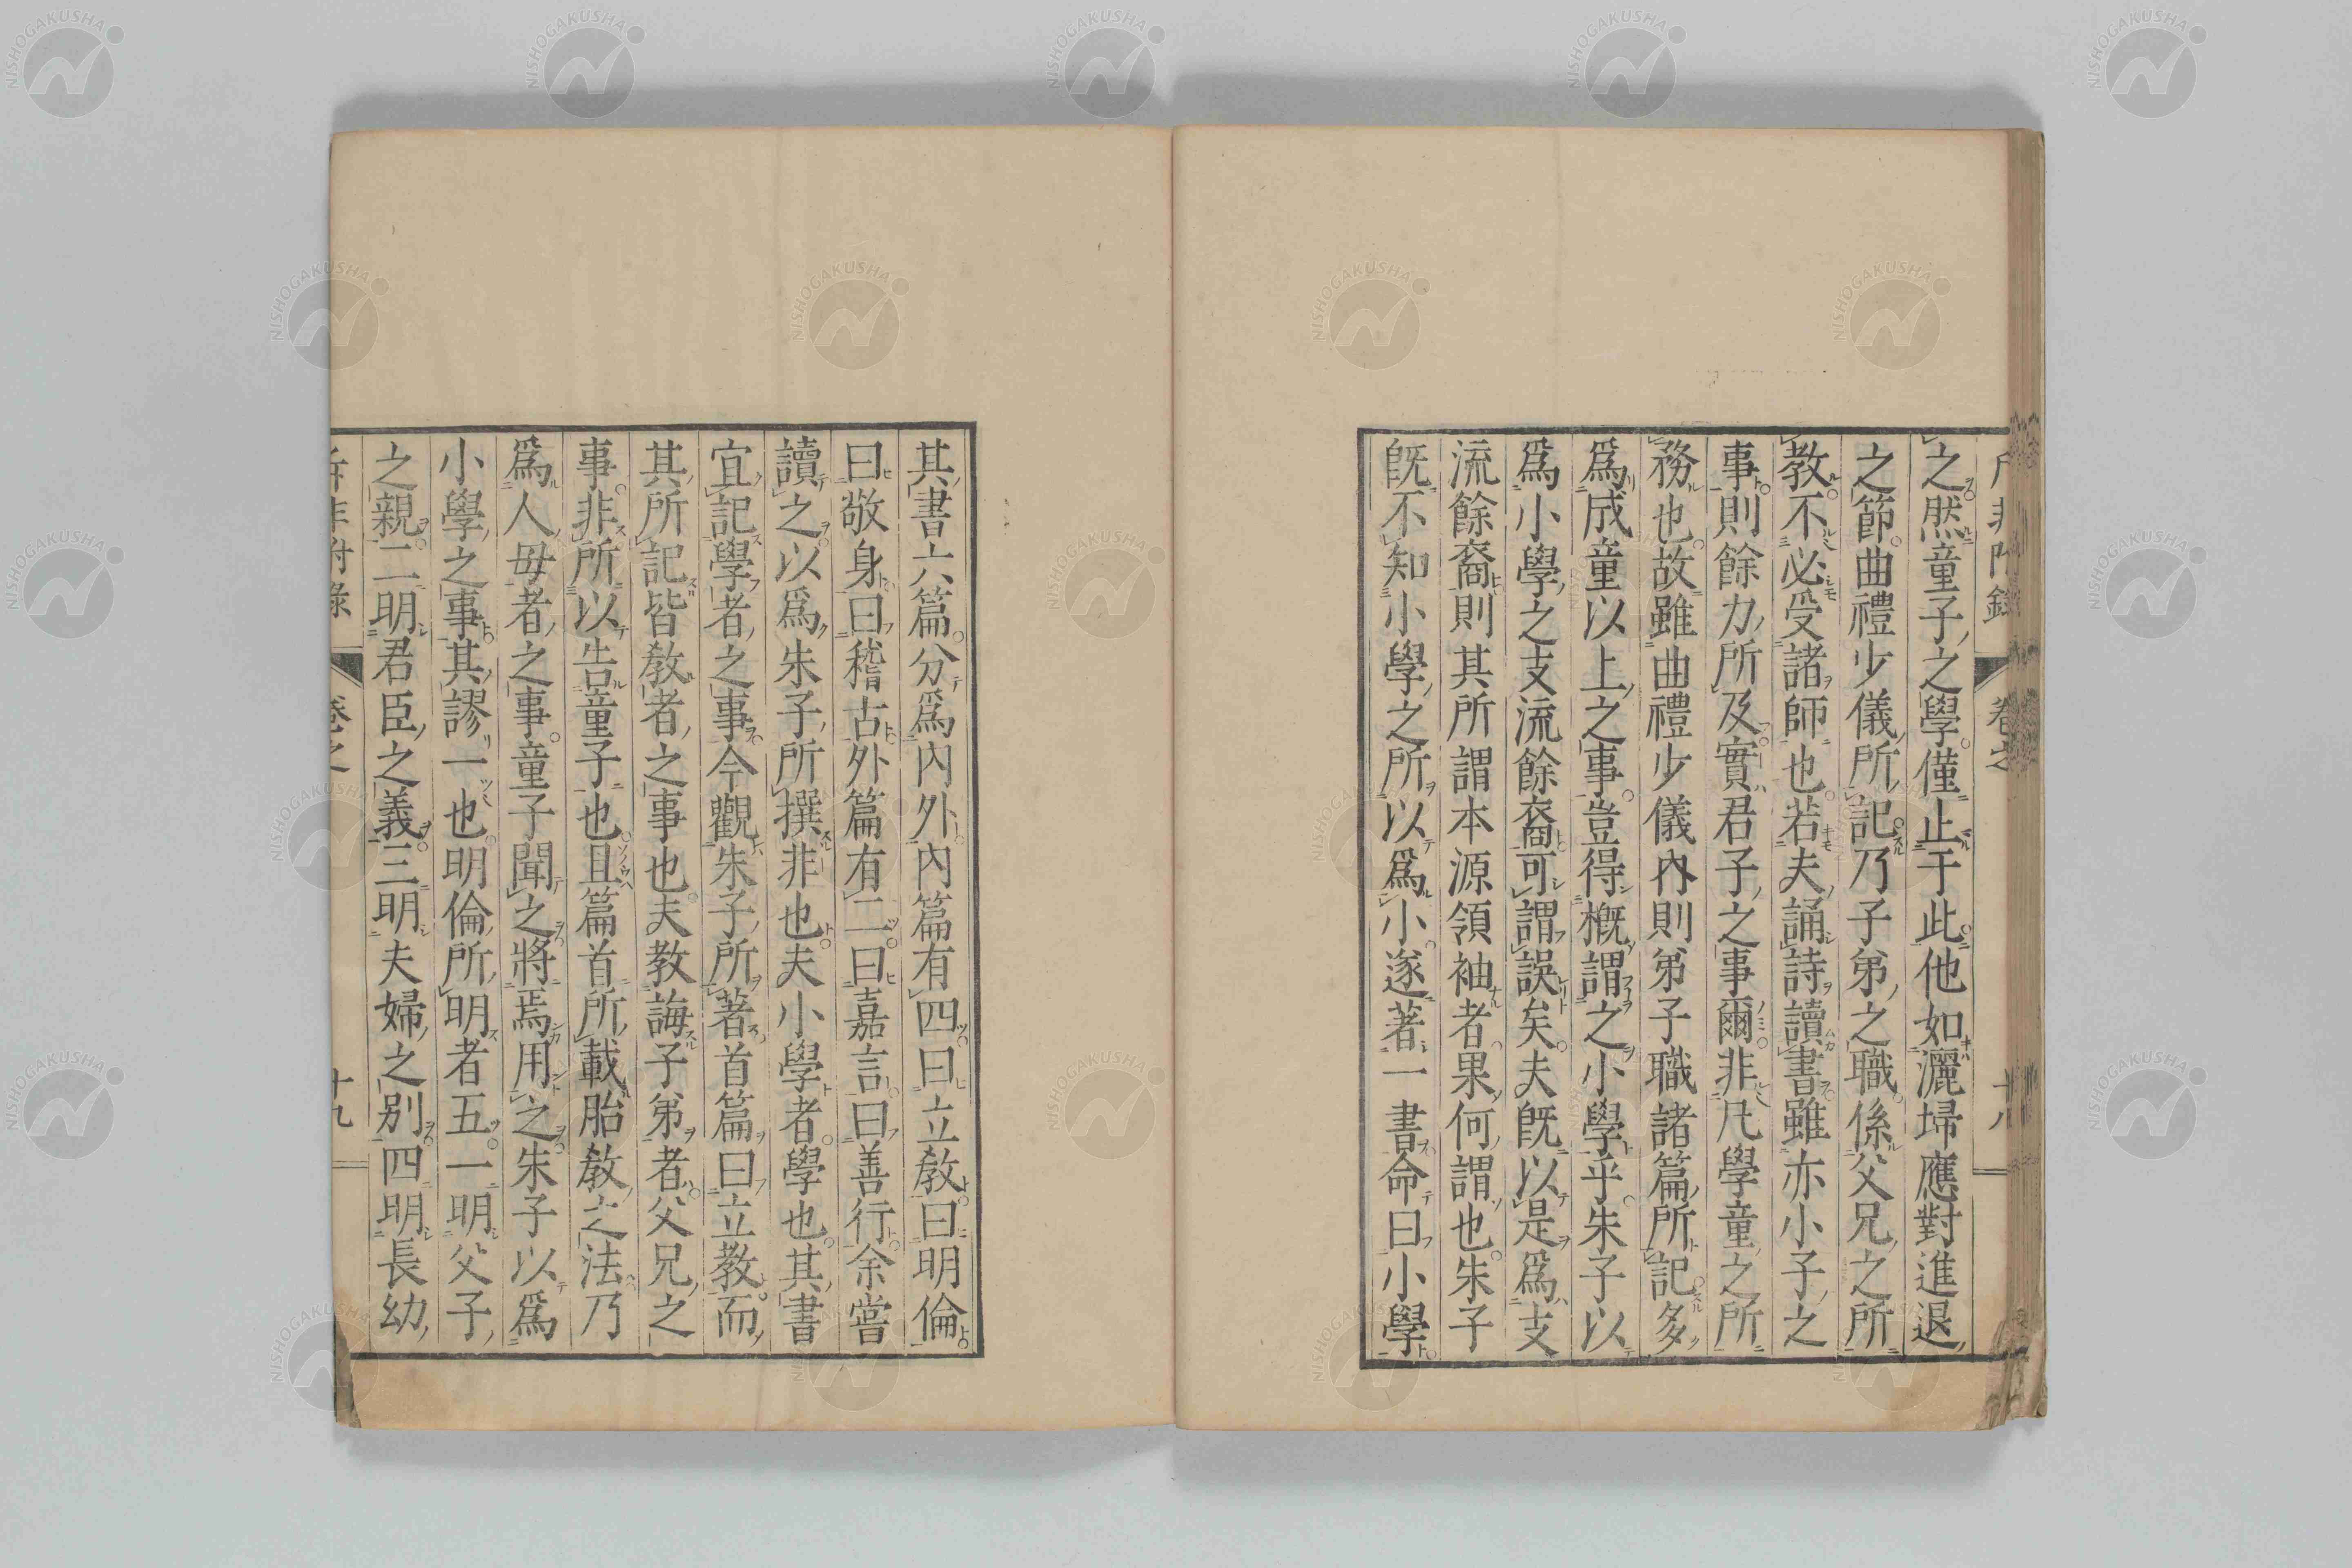 之然童子之學僅止于此他如灑埽應對進退
之節曲禮少儀所記乃子弟之職係父兄之所
教不必受諸師也若夫誦詩讀書雖亦小子之
事則餘力所及實君子之事爾非凡學童之所
務也故雖曲禮少儀內則弟子職諸篇所記多
爲成童以上之事豈得概謂之小學乎朱子以
爲小學之支流餘裔可謂誤矣夫既以是爲支
流餘裔則其所謂本源領袖者果何謂也朱子
既不知小學之所以爲小遂著一書命曰小學
其書六篇分爲內外內篇有四曰立教曰明倫
曰敬身曰稽古外篇有二曰嘉言曰善行余嘗
讀之以爲朱子所撰非也夫小學者學也其書
宜記學者之事今觀朱子所著首篇曰立教而
其所記皆教者之事也夫教誨子弟者父兄之
事非所以告童子也且篇首所載胎教之法乃
爲人母者之事童子聞之將焉用之朱子以爲
小學之事其謬一也明倫所明者五一明父子
之親二明君臣之義三明夫婦之别四明長幼
卷之
十九